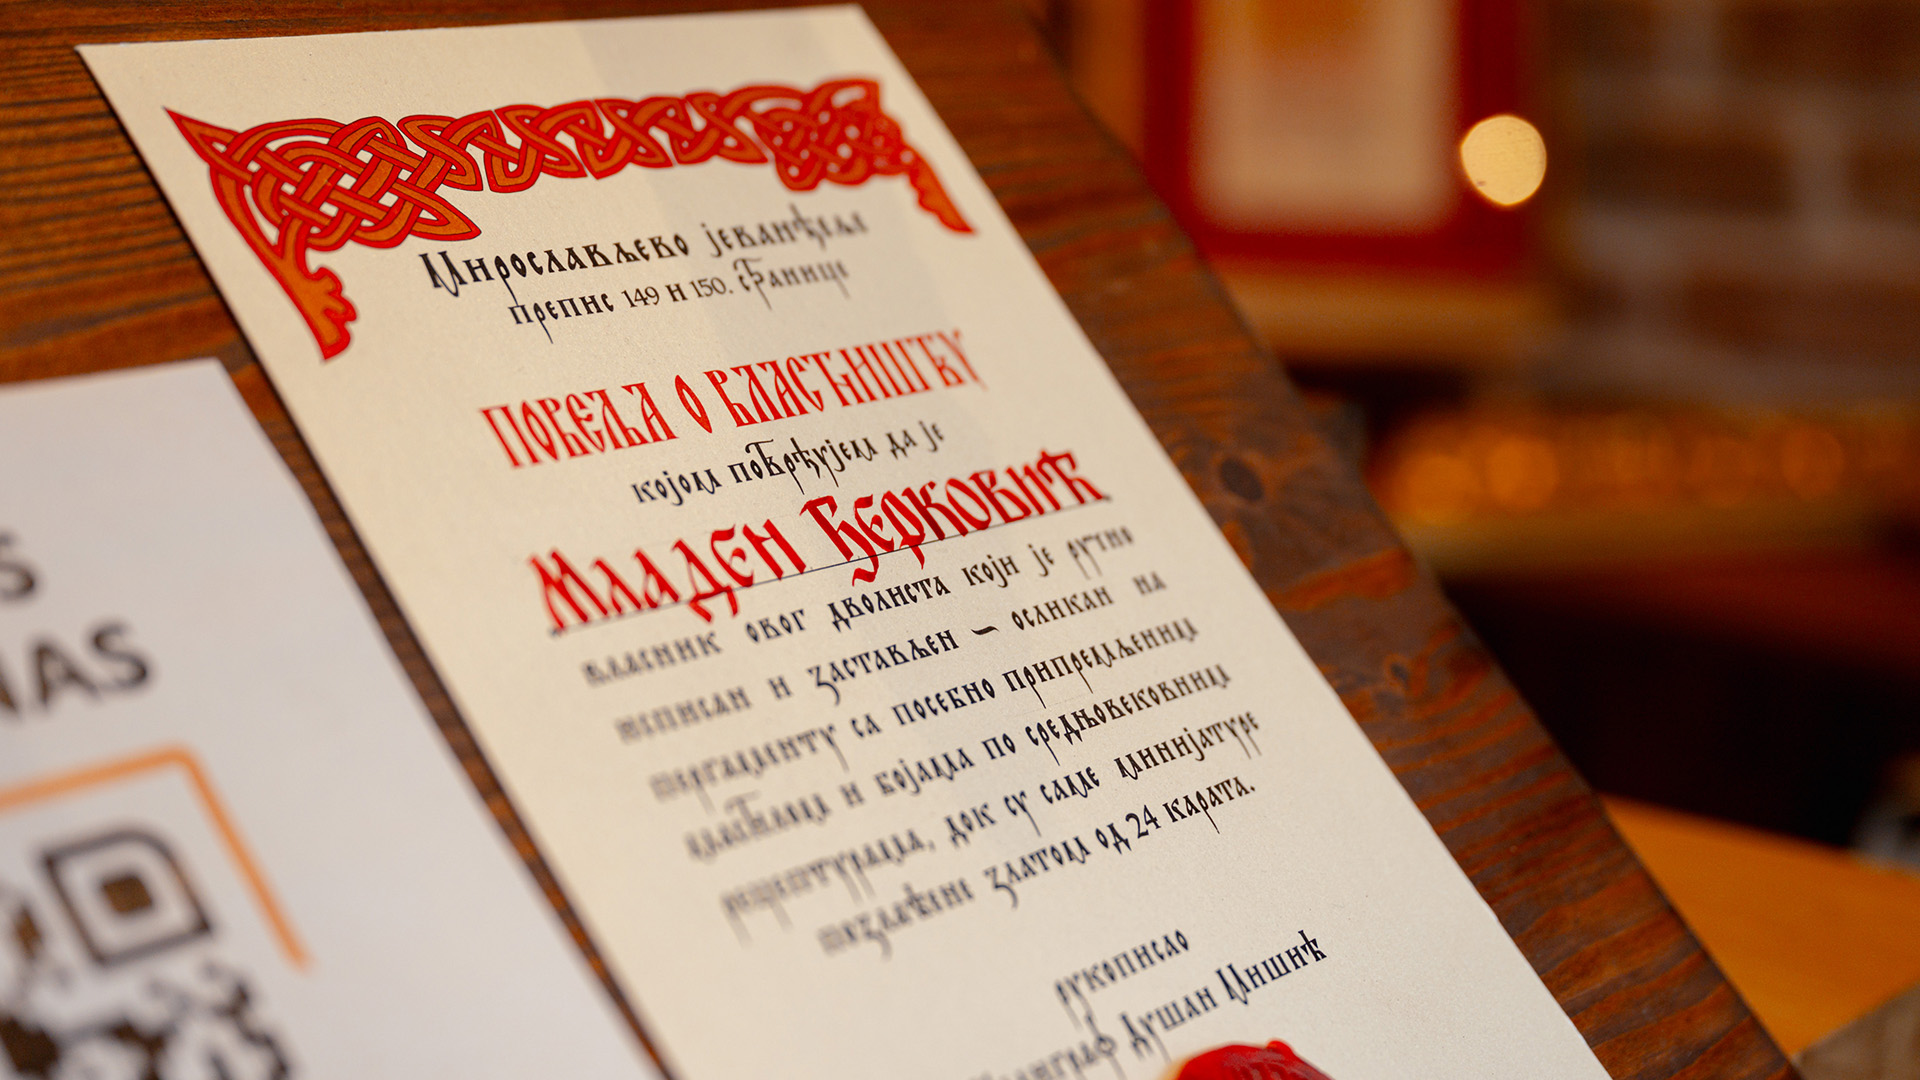 Мирослављево јеванђеље
препис 149 и 150. странице
ПОВЕЉА О ВЛАСНИШТВУ
којом потврђујем да је
Младен Ђерковић
власник овог дволиста који је ручно
исписан и застављен – осликан на
пергаменту са посебно припремљеним
мастилом и бојама по средњовековним
рецептурама, док су саме минијатуре
позлаћене златом од 24 карата.
рукописао
калиграф Душан Мишић
S
NAS